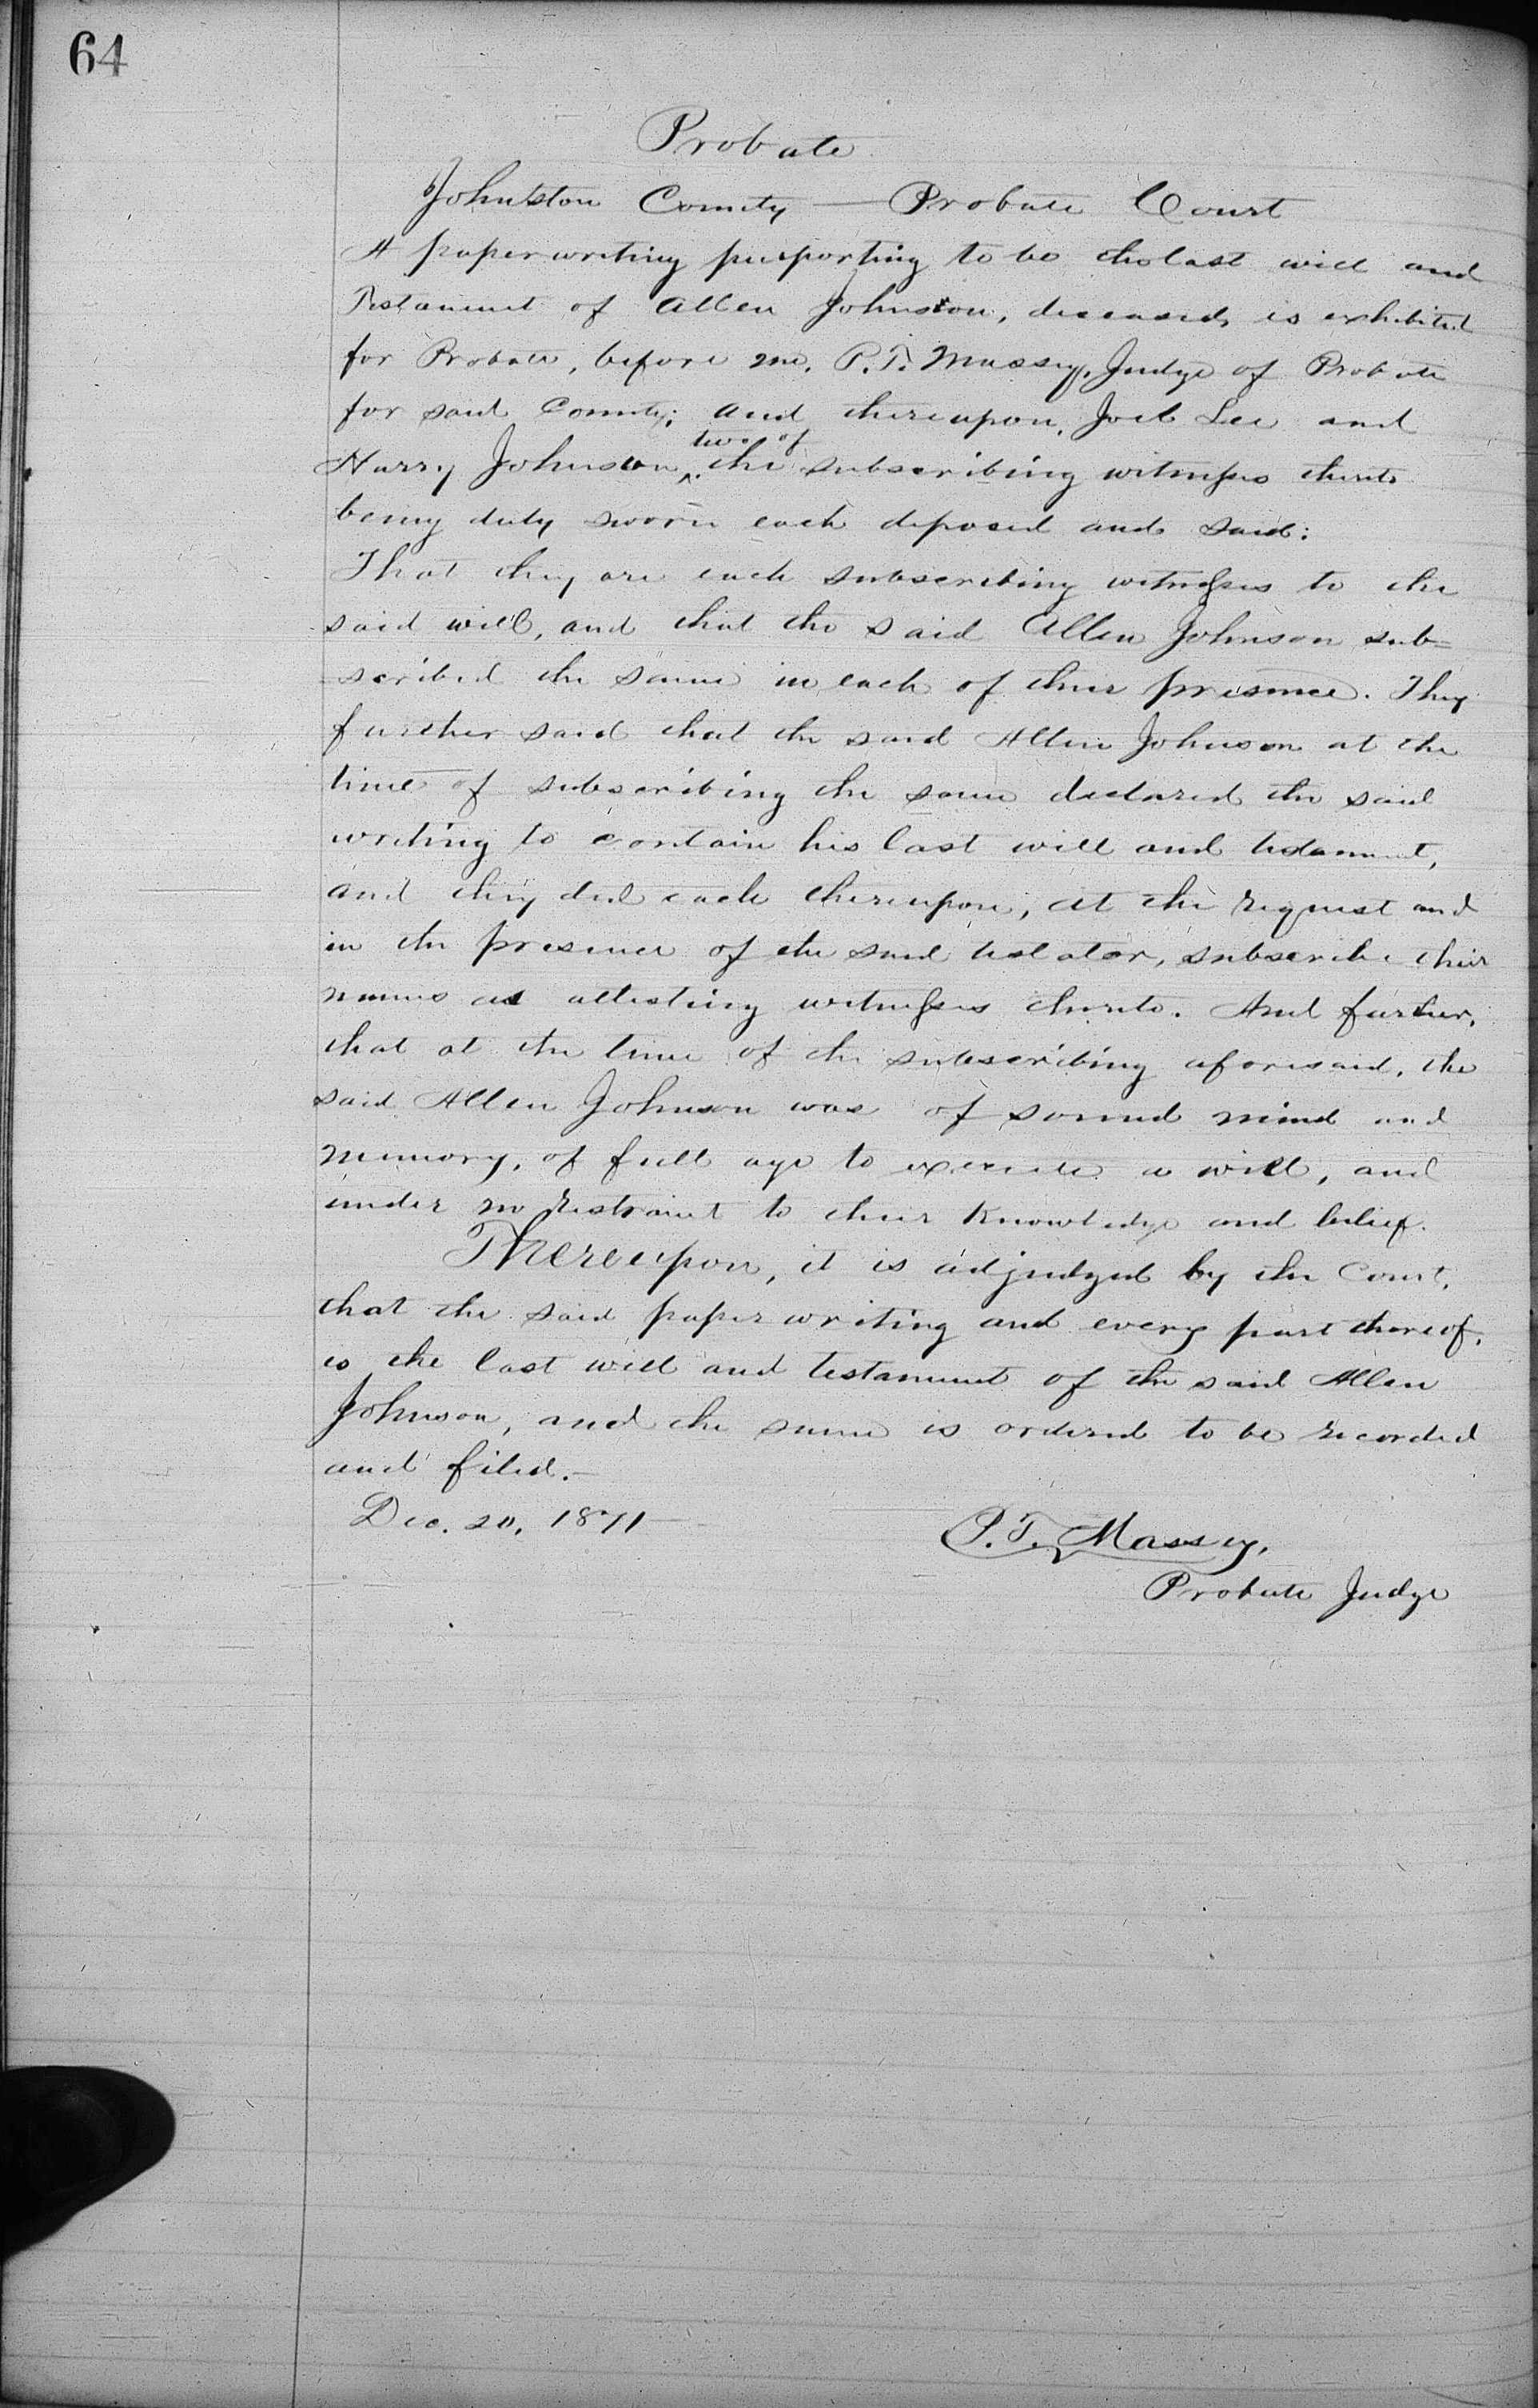 64
Probate
Johnston County — Probate Court
A paper writing purporting to be the last will and
Testament of Allen Johnston, deceased, is exhibited
for Probate, before me, P. T. Massey, Judge of Probate
for said County; and thereupon, Joel Lee and
two of
Harry Johnson ^ the subscribing witnesses thereto
being duly sworn each deposed and said:
That they are each subscribing witnesses to the
said will, and that the said Allen Johnson sub=
scribed the same in each of their presence. They
further said that the said Allen Johnson at the
time of subscribing the same declared the said
writing to contain his last will and testament,
and they did each thereupon, at the request and
in the presence of the said testator, subscribe their
names as attesting witnesses thereto. And further,
that at the time of the subscribing aforesaid, the
said Allen Johnson was of sound mind and
memory, of full age to execute a will, and
under no restraint to their knowledge and belief.
Thereupon, it is adjudged by the Court,
that the said paper writing and every part thereof,
is the last will and testament of the said Allen
Johnson, and the same is ordered to be recorded
and filed.—
Dec. 20, 1871—
P. T. Massey,
Probate Judge